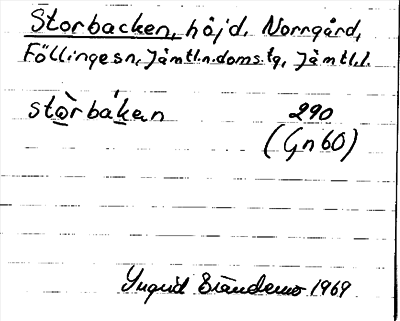 Storbacken, höjd, Norrgård,
Föllinge sn, Jämtl.n.doms.tg, Jämtl.l.
stòrbák̲en 290
(Gn 60)
Ingrid Brändemo 1969